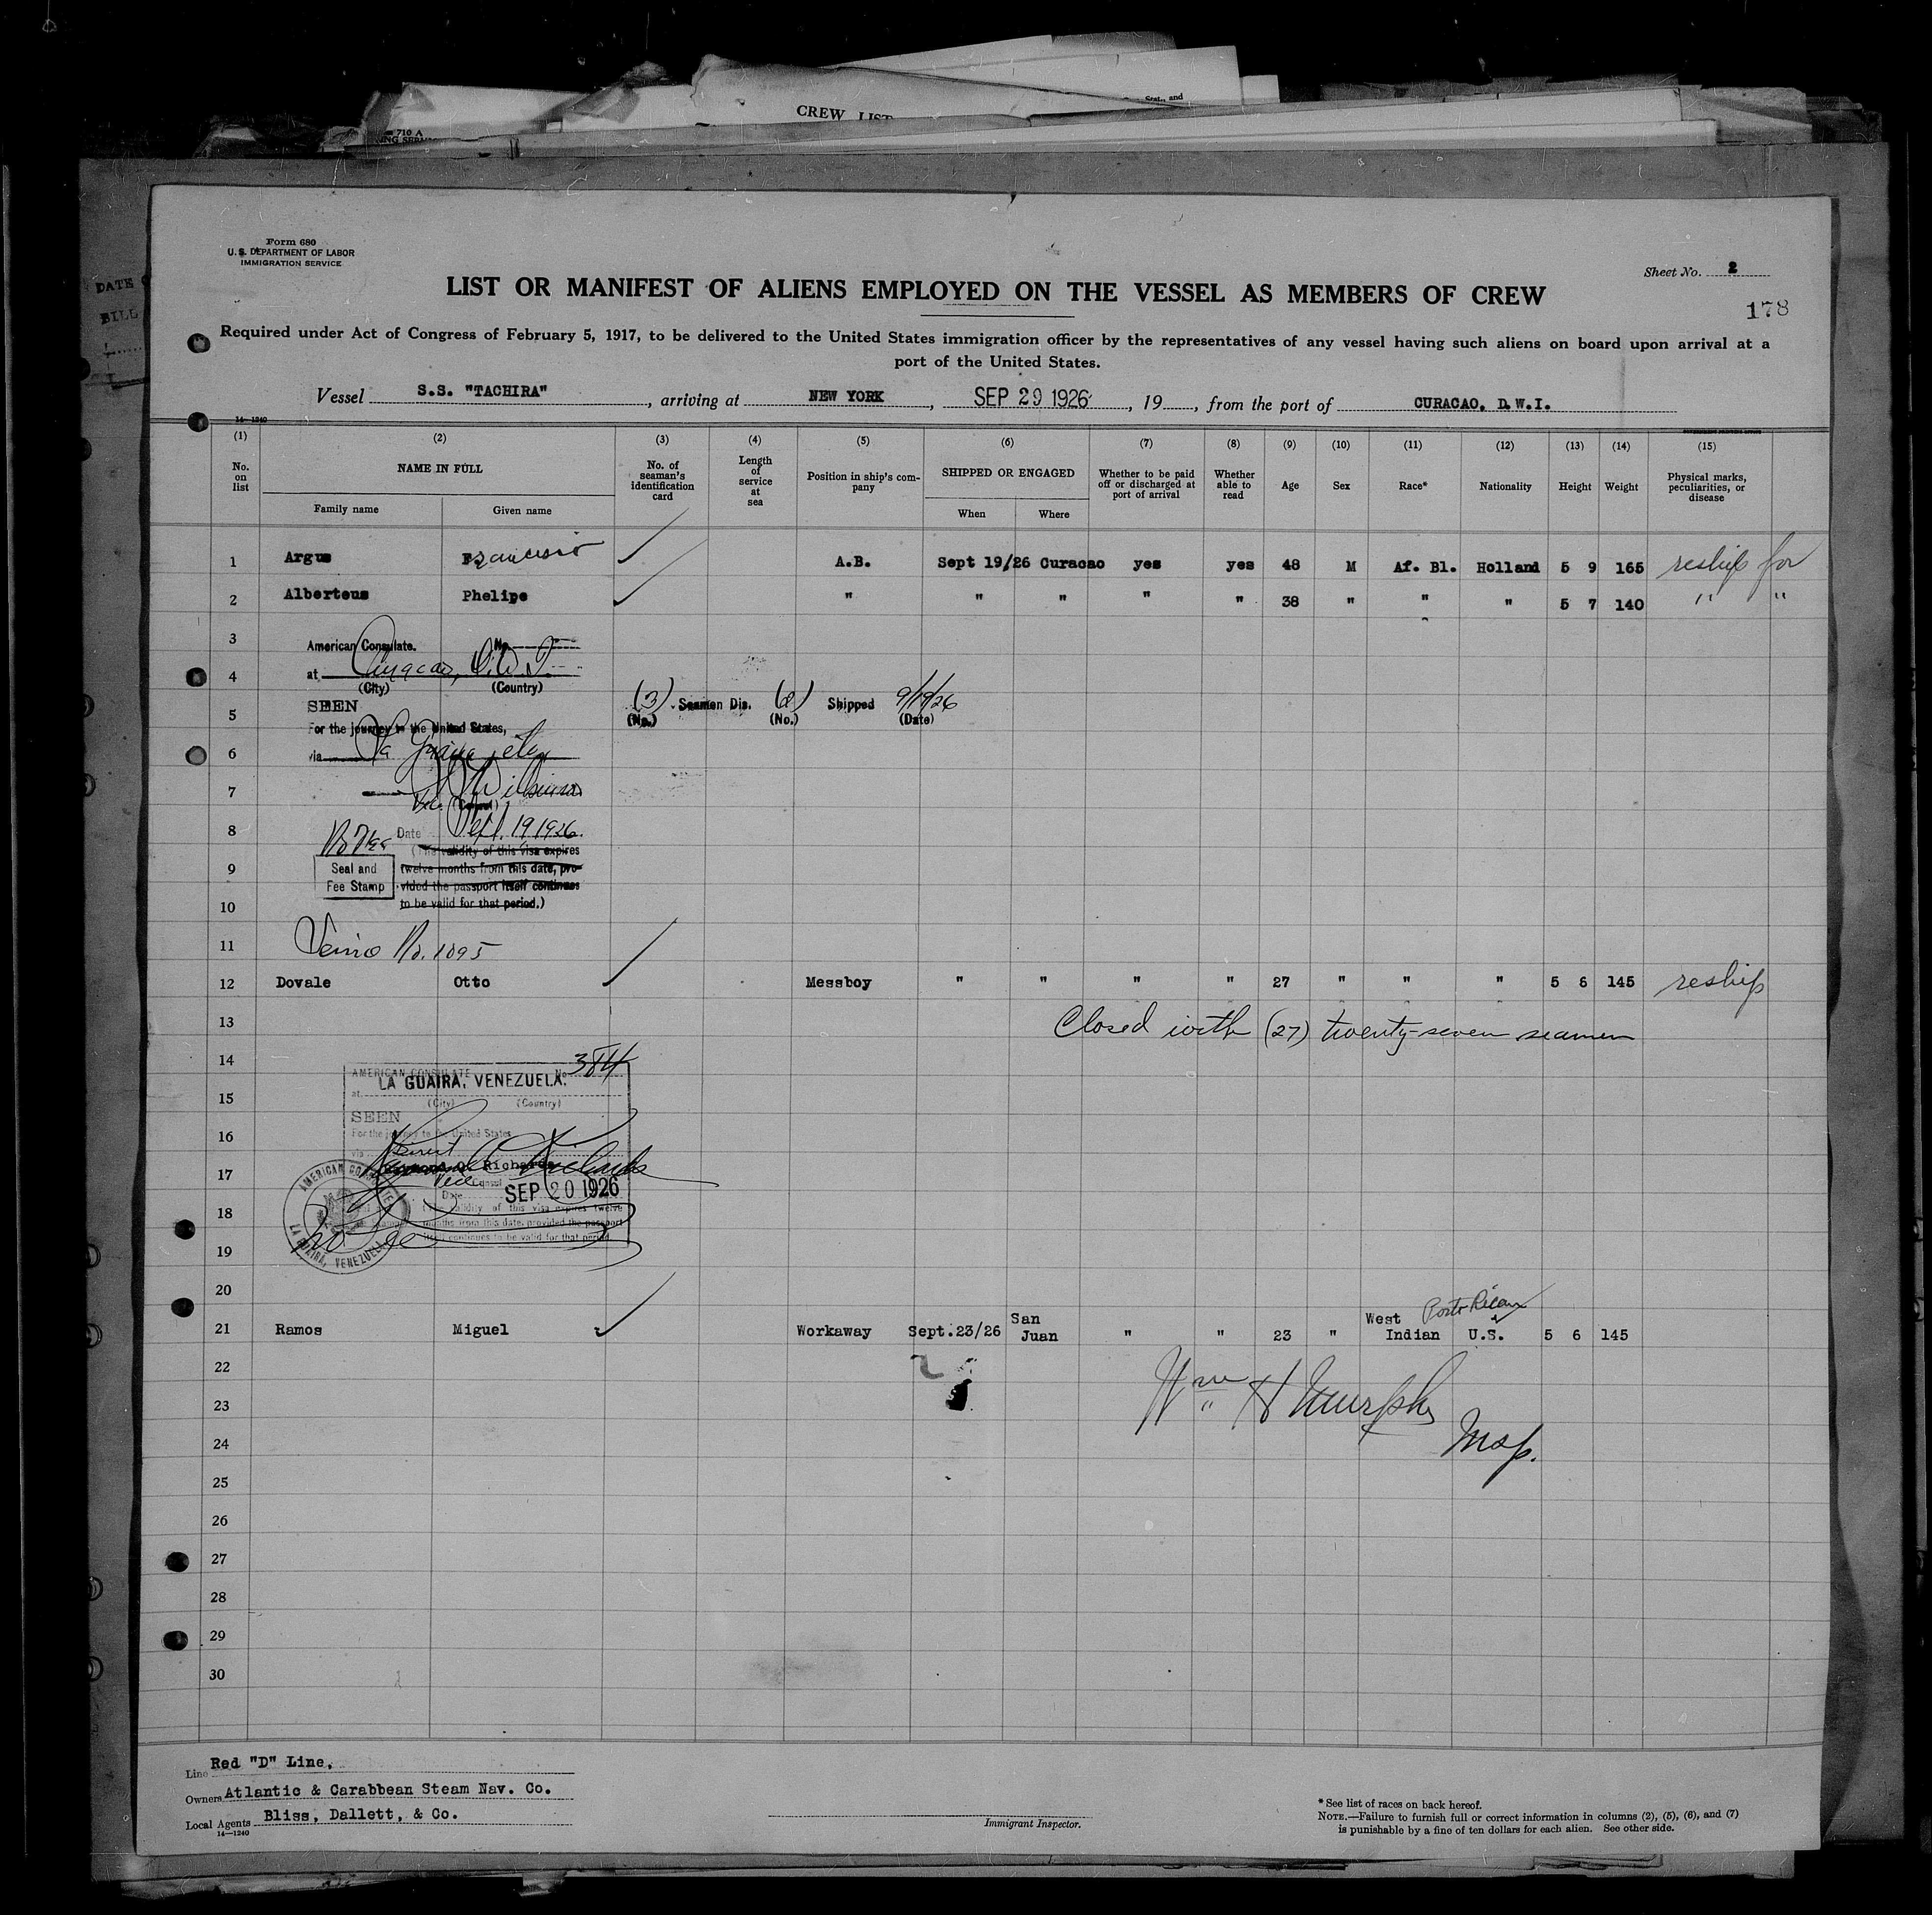 CREW LIST
Stat., and
710 A
DATE
BILL
Form 680
U. S. DEPARTMENT OF LABOR
IMMIGRATION SERVICE
Sheet No. 2
178
LIST OR MANIFEST OF ALIENS EMPLOYED ON THE VESSEL AS MEMBERS OF CREW
Required under Act of Congress of February 5, 1917, to be delivered to the United States immigration officer by the representatives of any vessel having such aliens on board upon arrival at a
port of the United States.
Vessel S.S. "TACHIRA", arriving at NEW YORK, SEP 29 1926, 19, from the port of CURACAO, D.W.I.
14—1240
(1) (2) (3) (4) (5) (6) (7) (8) (9) (10) (11) (12) (13) (14) (15)
No. on list
NAME IN FULL
Family name
Given name
No. of seaman's identification card
Length of service at sea
Position in ship's company
SHIPPED OR ENGAGED
When
Where
Whether to be paid off or discharged at port of arrival
Whether able to read
Age
Sex
Race*
Nationality
Height
Weight
Physical marks, peculiarities, or disease
1 Argus Francisco A.B. Sept 19/26 Curacao yes yes 48 M Af. Bl. Holland 5 9 165 reship for
2 Alberteus Phelipe " " " " " 38 " " " 5 7 140 " "
3
American Consulate. No.
4
at Curacao, D.W.I.
(City) (Country)
5
SEEN
(3) Seamen Dis. (2) Shipped 9/19/26
(No.) (No.) (Date)
For the journey to the United States,
6
via La Guaira, etc
7
Vice (Consul)
8
No Fee Date Sept. 19 1926.
(The validity of this visa expires
9
Seal and
Fee Stamp
twelve months from this date, pro-
vided the passport itself continues
10
to be valid for that period.)
11
No. 1095
12 Dovale Otto Messboy " " " " 27 " " " 5 6 145 reship
13
Closed with (27) twenty-seven seamen
14
AMERICAN CONSULATE No. 384
LA GUAIRA, VENEZUELA.
15
at
(City) (Country)
SEEN
16
For the journey to the United States
via Direct
17
Richards
Vice Consul
Date SEP 20 1926
18
(The validity of this visa expires twelve
months from this date, provided the passport
itself continues to be valid for that period.
AMERICAN CONSULATE
LA GUAIRA, VENEZUELA
No fee
19
20
Porto Rican
21 Ramos Miguel Workaway Sept. 23/26 San Juan " " 23 " West Indian U.S. 5 6 145
22
23
Wm H Murphy
24
Insp.
25
26
27
28
29
30
Line Red "D" Line,
Owners Atlantic & Carabbean Steam Nav. Co.
Local Agents Bliss, Dallett, & Co.
14—1240
Immigrant Inspector.
* See list of races on back hereof.
NOTE.—Failure to furnish full or correct information in columns (2), (5), (6), and (7)
is punishable by a fine of ten dollars for each alien. See other side.